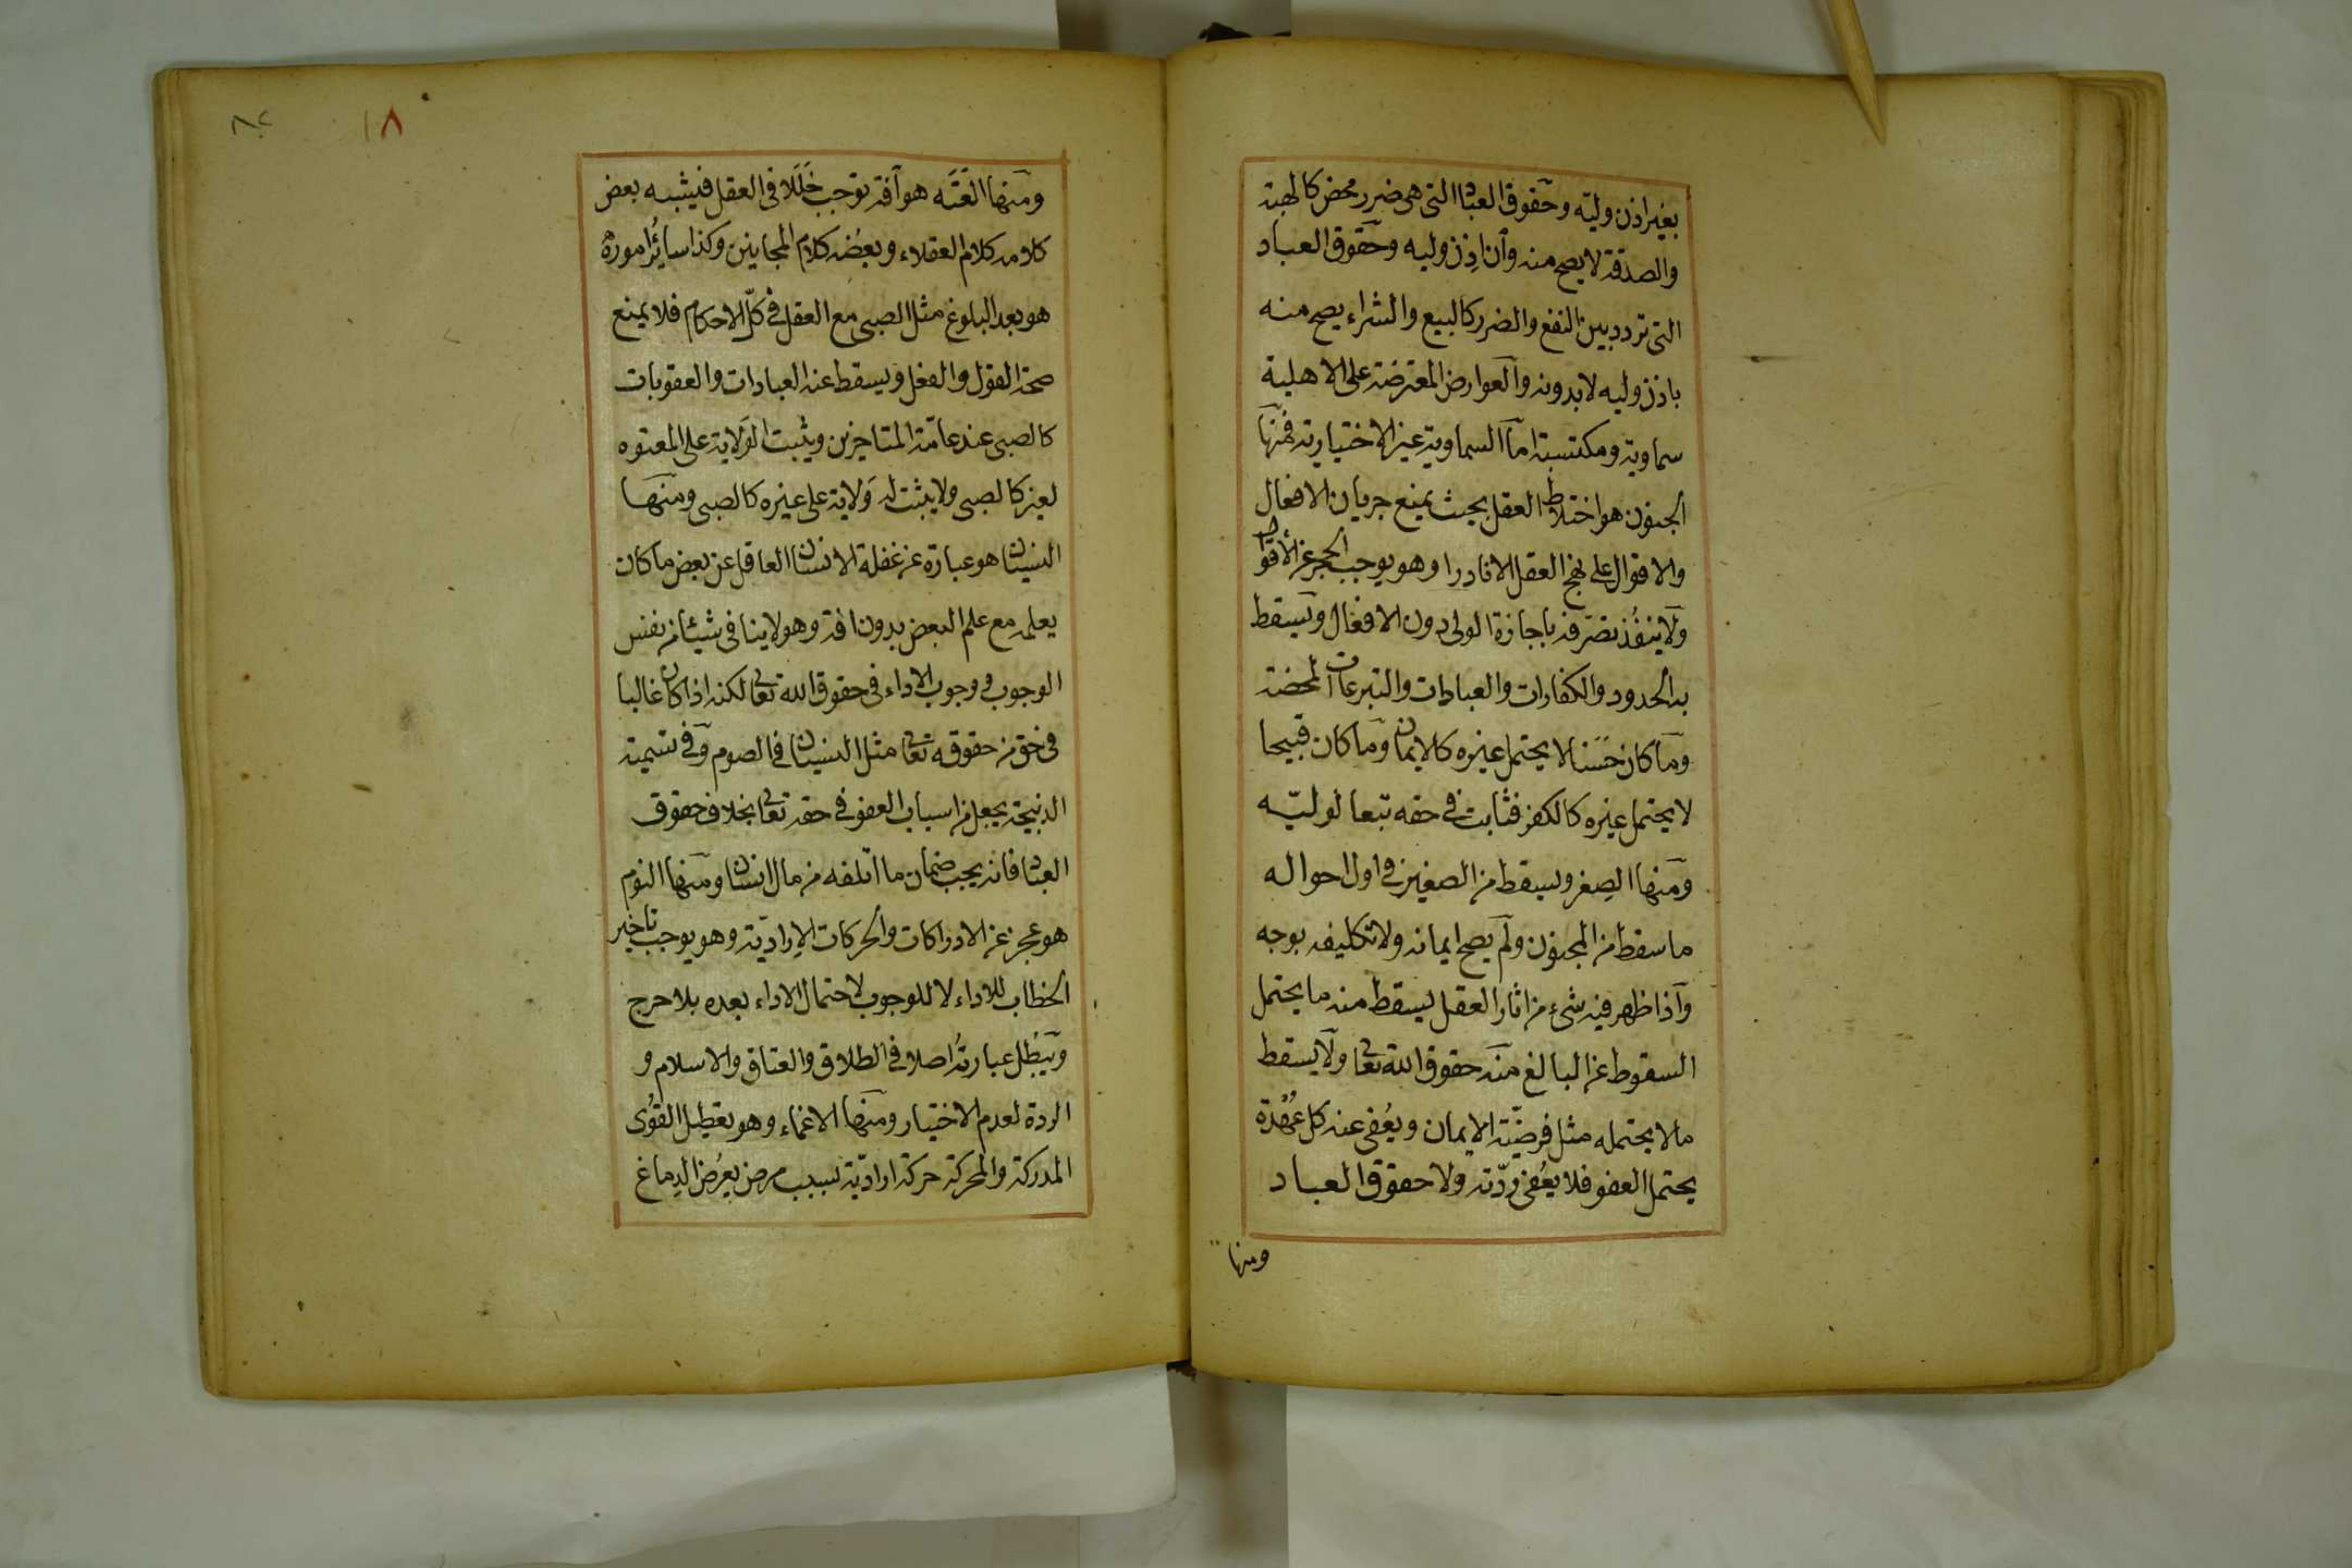 بغير اذن وليه وحقوق العباد التي هي ضرر محض كالهبة
والصدقة لا يصح منه وان اذن وليه وحقوق العباد
التي تردد بين النفع والضرر كالبيع والشراء يصح منه
باذن وليه لا بدونه والعوارض المعترضة على الاهلية
سماوية ومكتسبة اما السماوية غير الاختيارية فمنها
الجنون هو اختلاط العقل بحيث يمنع جريان الافعال
والاقوال على نهج العقل الا نادرا وهو يوجب الحجر عن الاقوال
ولا ينفذ تصرفه باجازة الولي دون الافعال ويسقط
به الحدود والكفارات والعبادات والتبرعات المحضة
وما كان حسنا لا يحتمل غيره كالايمان وما كان قبيحا
لا يحتمل غيره كالكفر فثابت في حقه تبعا لوليّه
ومنها الصِغر ويسقط من الصغير في اول احواله
ما سقط من المجنون ولم يصح ايمانه ولا تكليفه بوجه
واذا ظهر فيه شيء من اثار العقل يسقط منه ما يحتمل
السقوط عن البالغ منه حقوق الله تعالى ولا يسقط
مالا يحتمله مثل فرضيّة الايمان ويُعفى عنه كل عُهْدة
يحتمل العفو فلا يُعْفى ردّته ولا حقوق العباد
ومنها
٨٢
١٨
ومنها العَتَه هو آفة توجب خَلَلا في العقل فيشبه بعض
كلامه كلام العقلاء وبعضه كلام المجانين وكذا سائر اموره
هو بعد البلوغ مثل الصبي مع العقل في كلّ الاحكام فلا يمنع
صحة القول والفعل ويسقط عنه العبادات والعقوبات
كالصبي عند عامّة المتاخرين ويثبت الوَلاية على المعتوه
لغيره كالصبي ولا يثبت له وَلاية على غيره كالصبي ومنها
النسيان هو عبارة عن غفلة الانسان العاقل عن بعض ما كان
يعلمه مع علم البعض بدون افة وهو لا ينافي شيئا من نفس
الوجوب ووجوب الاداء في حقوق الله تعالى لكنه اذا كان غالبا
في حق من حقوقه تعالى مثل النسيان في الصوم وفي تسمية
الذبيحة يجعل من اسباب العفو في حقه تعالى بخلاف حقوق
العباد فانه يجب ضمان ما اتلفه من مال انسان ومنها النوم
هو عجز عن الادراكات والحركات الاِراديّة وهو يوجب تاخير
الخطاب للاداء لا للوجوب لاحتمال الاداء بعده بلا حرج
ويَبْطل عبارتُه اصلا في الطلاق والعتاق والاسلام و
الردة لعدم الاختيار ومنها الاغماء وهو تعطيل القُوى
المدركة والمحركة حركة اراديّة بسبب مرض يعرُض الدِماغ